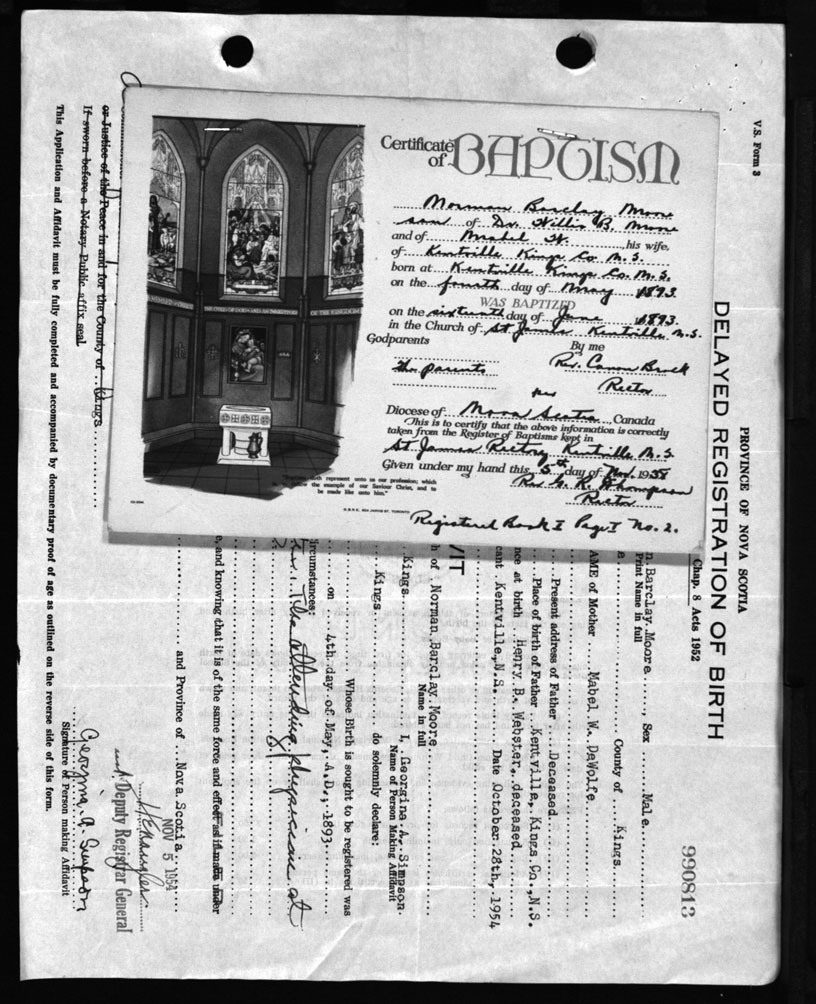 Certificate
of BAPTISM
Norman Barclay Moore
son of Dr. Willis B. Moore
and of Mabel W. his wife,
of Kentville Kings Co. N.S.
born at Kentville Kings Co. N.S.
on the fourth day of May 1893.
WAS BAPTIZED
on the sixteenth day of June 1893.
in the Church of St James Kentville N.S.
Godparents By me
the parents Rev. Canon Brock
Rector
per
Diocese of Nova Scotia, Canada
This is to certify that the above information is correctly
taken from the Register of Baptisms kept in
St James Rectory Kentville N.S.
Given under my hand this 5th day of Nov. 1958
Rev. G. R. Thompson
Rector
Registered Book I Page I No. 2.
represent unto us our profession; which
the example of our Saviour Christ, and to
be made like unto him."
V.S. Form 3
PROVINCE OF NOVA SCOTIA
DELAYED REGISTRATION OF BIRTH
Chap. 8 Acts 1952
990813
n Barclay Moore, Sex Male
Print Name in full
County of Kings
AME of Mother Mabel W. DeWolfe
Present address of Father Deceased
Place of birth of Father Kentville, Kings Co., N.S.
nce at birth Henry B. Webster, deceased
cant Kentville, N.S. Date October 28th, 1954
VIT
h of Norman Barclay Moore
Name in full
Kings I, Georgina A. Simpson
Name of Person Making Affidavit
Kings do solemnly declare:
Whose Birth is sought to be registered was
on 4th day of May, A.D., 1893
ircumstances:
The attending physician at
e, and knowing that it is of the same force and effect as if made under
and Province of Nova Scotia
NOV 5 1954
Deputy Registrar General
or Justice of the Peace in and for the County of Kings
If sworn before a Notary Public affix seal
Georgina A. Simpson
Signature of Person making Affidavit
This Application and Affidavit must be fully completed and accompanied by documentary proof of age as outlined on the reverse side of this form.